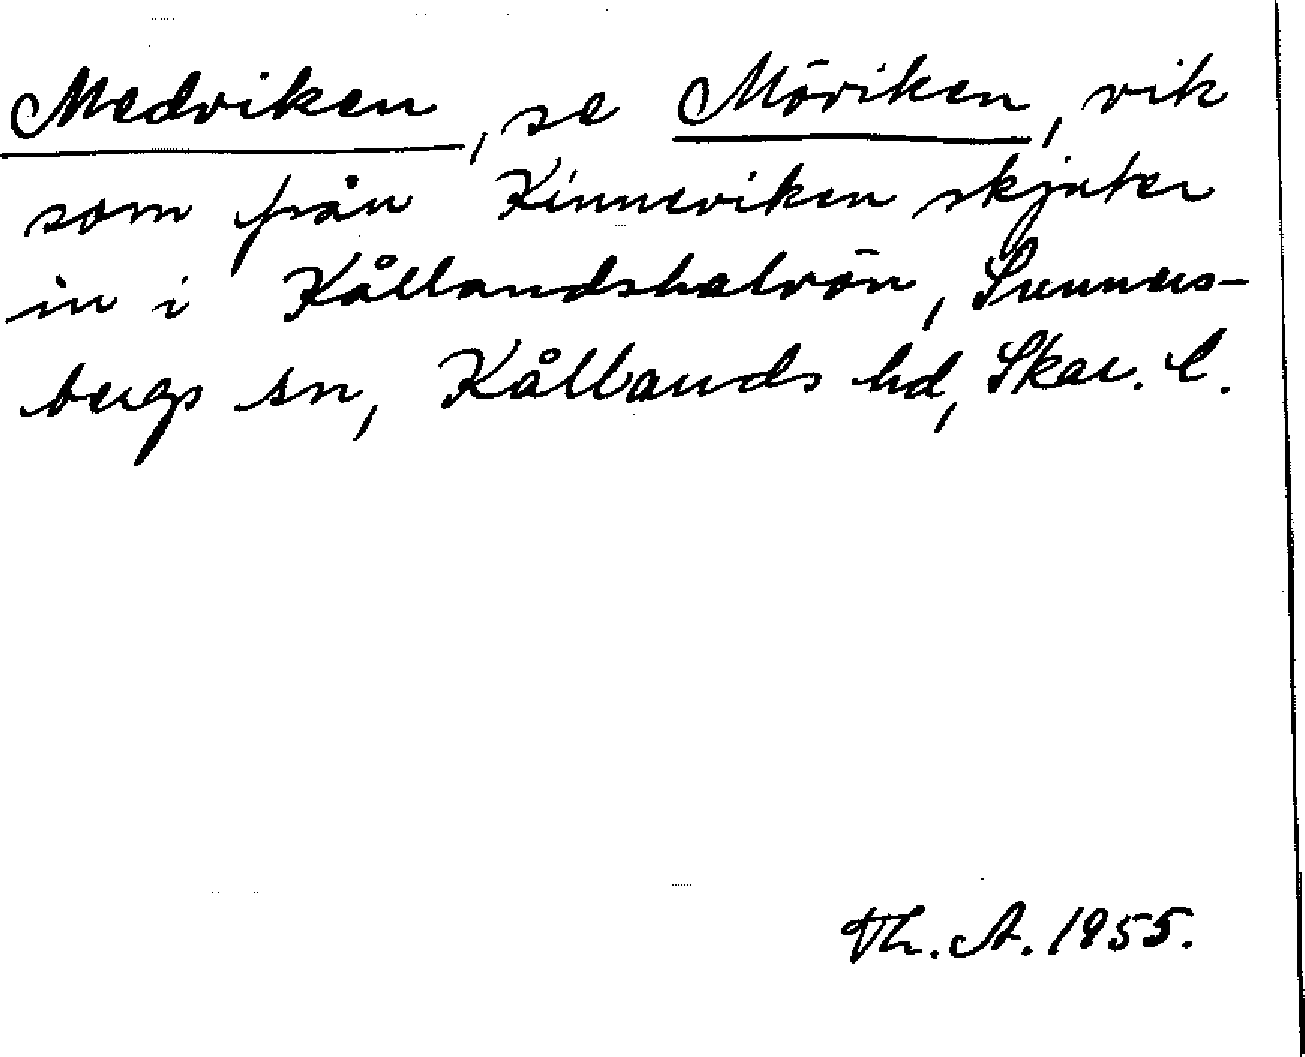 Medviken, se Möviken, vik
som från Kinneviken skjuter
in i Kållandshalvön, Sunners-
bergs sn, Kållands hd, Skar. l.
Th. A. 1955.